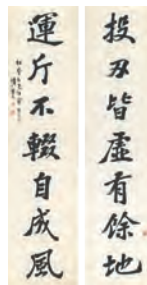 投刃皆虛有餘地
運斤不輟自成風